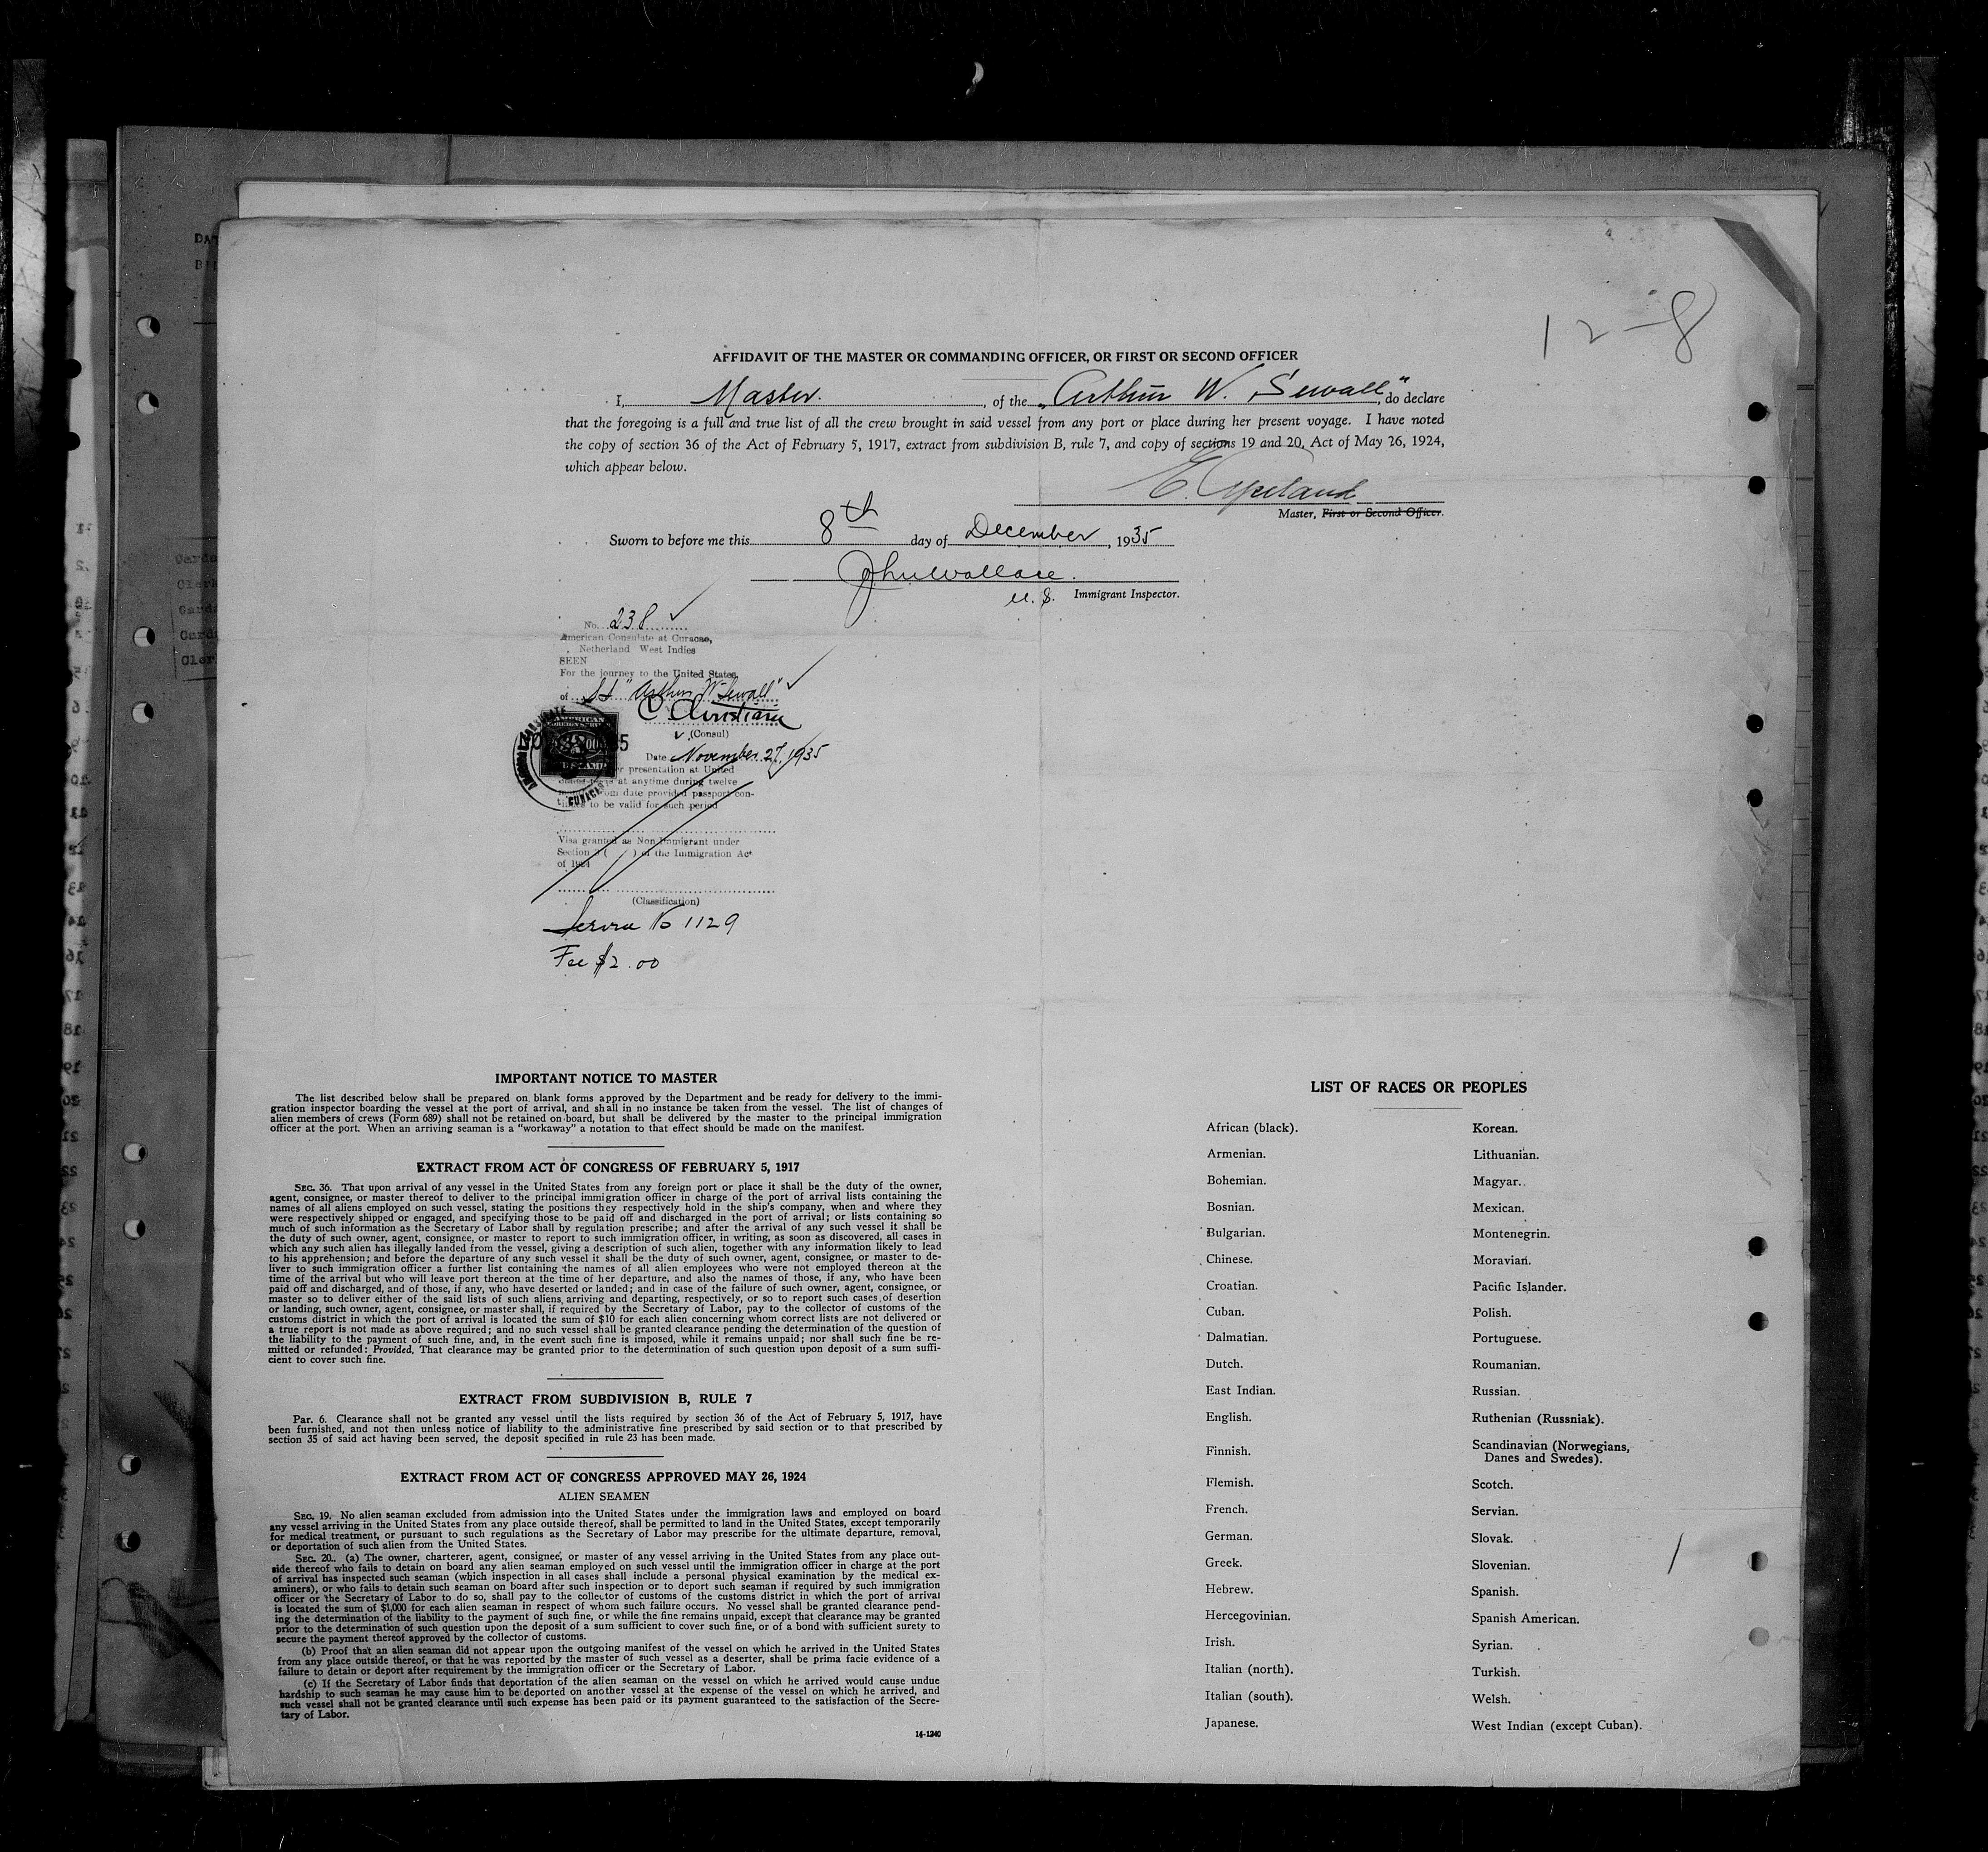 12-8
AFFIDAVIT OF THE MASTER OR COMMANDING OFFICER, OR FIRST OR SECOND OFFICER
I, Master. , of the "Arthur W. Sewall", do declare
that the foregoing is a full and true list of all the crew brought in said vessel from any port or place during her present voyage. I have noted
the copy of section 36 of the Act of February 5, 1917, extract from subdivision B, rule 7, and copy of sections 19 and 20, Act of May 26, 1924,
which appear below.
E.
Master, First or Second Officer.
Sworn to before me this 8th day of December, 1935
John Wallace.
U.S. Immigrant Inspector.
No. 238
American Consulate at Curacao,
Netherland West Indies
SEEN
For the journey to the United States,
of "Arthur W. Sewall"
C. Christiani
(Consul)
Date November 27, 1935
presentation at United
at anytime during twelve
from date provided passport con-
tinues to be valid for such period
Visa granted as Non Immigrant under
Section 3 ( ) of the Immigration Act
of 1924
(Classification)
No 1129
Fee $2.00
IMPORTANT NOTICE TO MASTER
The list described below shall be prepared on blank forms approved by the Department and be ready for delivery to the immi-
gration inspector boarding the vessel at the port of arrival, and shall in no instance be taken from the vessel. The list of changes of
alien members of crews (Form 689) shall not be retained on board, but shall be delivered by the master to the principal immigration
officer at the port. When an arriving seaman is a "workaway" a notation to that effect should be made on the manifest.
EXTRACT FROM ACT OF CONGRESS OF FEBRUARY 5, 1917
SEC. 36. That upon arrival of any vessel in the United States from any foreign port or place it shall be the duty of the owner,
agent, consignee, or master thereof to deliver to the principal immigration officer in charge of the port of arrival lists containing the
names of all aliens employed on such vessel, stating the positions they respectively hold in the ship's company, when and where they
were respectively shipped or engaged, and specifying those to be paid off and discharged in the port of arrival; or lists containing so
much of such information as the Secretary of Labor shall by regulation prescribe; and after the arrival of any such vessel it shall be
the duty of such owner, agent, consignee, or master to report to such immigration officer, in writing, as soon as discovered, all cases in
which any such alien has illegally landed from the vessel, giving a description of such alien, together with any information likely to lead
to his apprehension; and before the departure of any such vessel it shall be the duty of such owner, agent, consignee, or master to de-
liver to such immigration officer a further list containing the names of all alien employees who were not employed thereon at the
time of the arrival but who will leave port thereon at the time of her departure, and also the names of those, if any, who have been
paid off and discharged, and of those, if any, who have deserted or landed; and in case of the failure of such owner, agent, consignee, or
master so to deliver either of the said lists of such aliens arriving and departing, respectively, or so to report such cases of desertion
or landing, such owner, agent, consignee, or master shall, if required by the Secretary of Labor, pay to the collector of customs of the
customs district in which the port of arrival is located the sum of $10 for each alien concerning whom correct lists are not delivered or
a true report is not made as above required; and no such vessel shall be granted clearance pending the determination of the question of
the liability to the payment of such fine, and, in the event such fine is imposed, while it remains unpaid; nor shall such fine be re-
mitted or refunded: Provided, That clearance may be granted prior to the determination of such question upon deposit of a sum suffi-
cient to cover such fine.
EXTRACT FROM SUBDIVISION B, RULE 7
Par. 6. Clearance shall not be granted any vessel until the lists required by section 36 of the Act of February 5, 1917, have
been furnished, and not then unless notice of liability to the administrative fine prescribed by said section or to that prescribed by
section 35 of said act having been served, the deposit specified in rule 23 has been made.
EXTRACT FROM ACT OF CONGRESS APPROVED MAY 26, 1924
ALIEN SEAMEN
SEC. 19. No alien seaman excluded from admission into the United States under the immigration laws and employed on board
any vessel arriving in the United States from any place outside thereof, shall be permitted to land in the United States, except temporarily
for medical treatment, or pursuant to such regulations as the Secretary of Labor may prescribe for the ultimate departure, removal,
or deportation of such alien from the United States.
SEC. 20. (a) The owner, charterer, agent, consignee, or master of any vessel arriving in the United States from any place out-
side thereof who fails to detain on board any alien seaman employed on such vessel until the immigration officer in charge at the port
of arrival has inspected such seaman (which inspection in all cases shall include a personal physical examination by the medical ex-
aminers), or who fails to detain such seaman on board after such inspection or to deport such seaman if required by such immigration
officer or the Secretary of Labor to do so, shall pay to the collector of customs of the customs district in which the port of arrival
is located the sum of $1,000 for each alien seaman in respect of whom such failure occurs. No vessel shall be granted clearance pend-
ing the determination of the liability to the payment of such fine, or while the fine remains unpaid, except that clearance may be granted
prior to the determination of such question upon the deposit of a sum sufficient to cover such fine, or of a bond with sufficient surety to
secure the payment thereof approved by the collector of customs.
(b) Proof that an alien seaman did not appear upon the outgoing manifest of the vessel on which he arrived in the United States
from any place outside thereof, or that he was reported by the master of such vessel as a deserter, shall be prima facie evidence of a
failure to detain or deport after requirement by the immigration officer or the Secretary of Labor.
(c) If the Secretary of Labor finds that deportation of the alien seaman on the vessel on which he arrived would cause undue
hardship to such seaman he may cause him to be deported on another vessel at the expense of the vessel on which he arrived, and
such vessel shall not be granted clearance until such expense has been paid or its payment guaranteed to the satisfaction of the Secre-
tary of Labor.
14-1240
LIST OF RACES OR PEOPLES
African (black).
Armenian.
Bohemian.
Bosnian.
Bulgarian.
Chinese.
Croatian.
Cuban.
Dalmatian.
Dutch.
East Indian.
English.
Finnish.
Flemish.
French.
German.
Greek.
Hebrew.
Hercegovinian.
Irish.
Italian (north).
Italian (south).
Japanese.
Korean.
Lithuanian.
Magyar.
Mexican.
Montenegrin.
Moravian.
Pacific Islander.
Polish.
Portuguese.
Roumanian.
Russian.
Ruthenian (Russniak).
Scandinavian (Norwegians,
Danes and Swedes).
Scotch.
Servian.
Slovak.
Slovenian.
Spanish.
Spanish American.
Syrian.
Turkish.
Welsh.
West Indian (except Cuban).